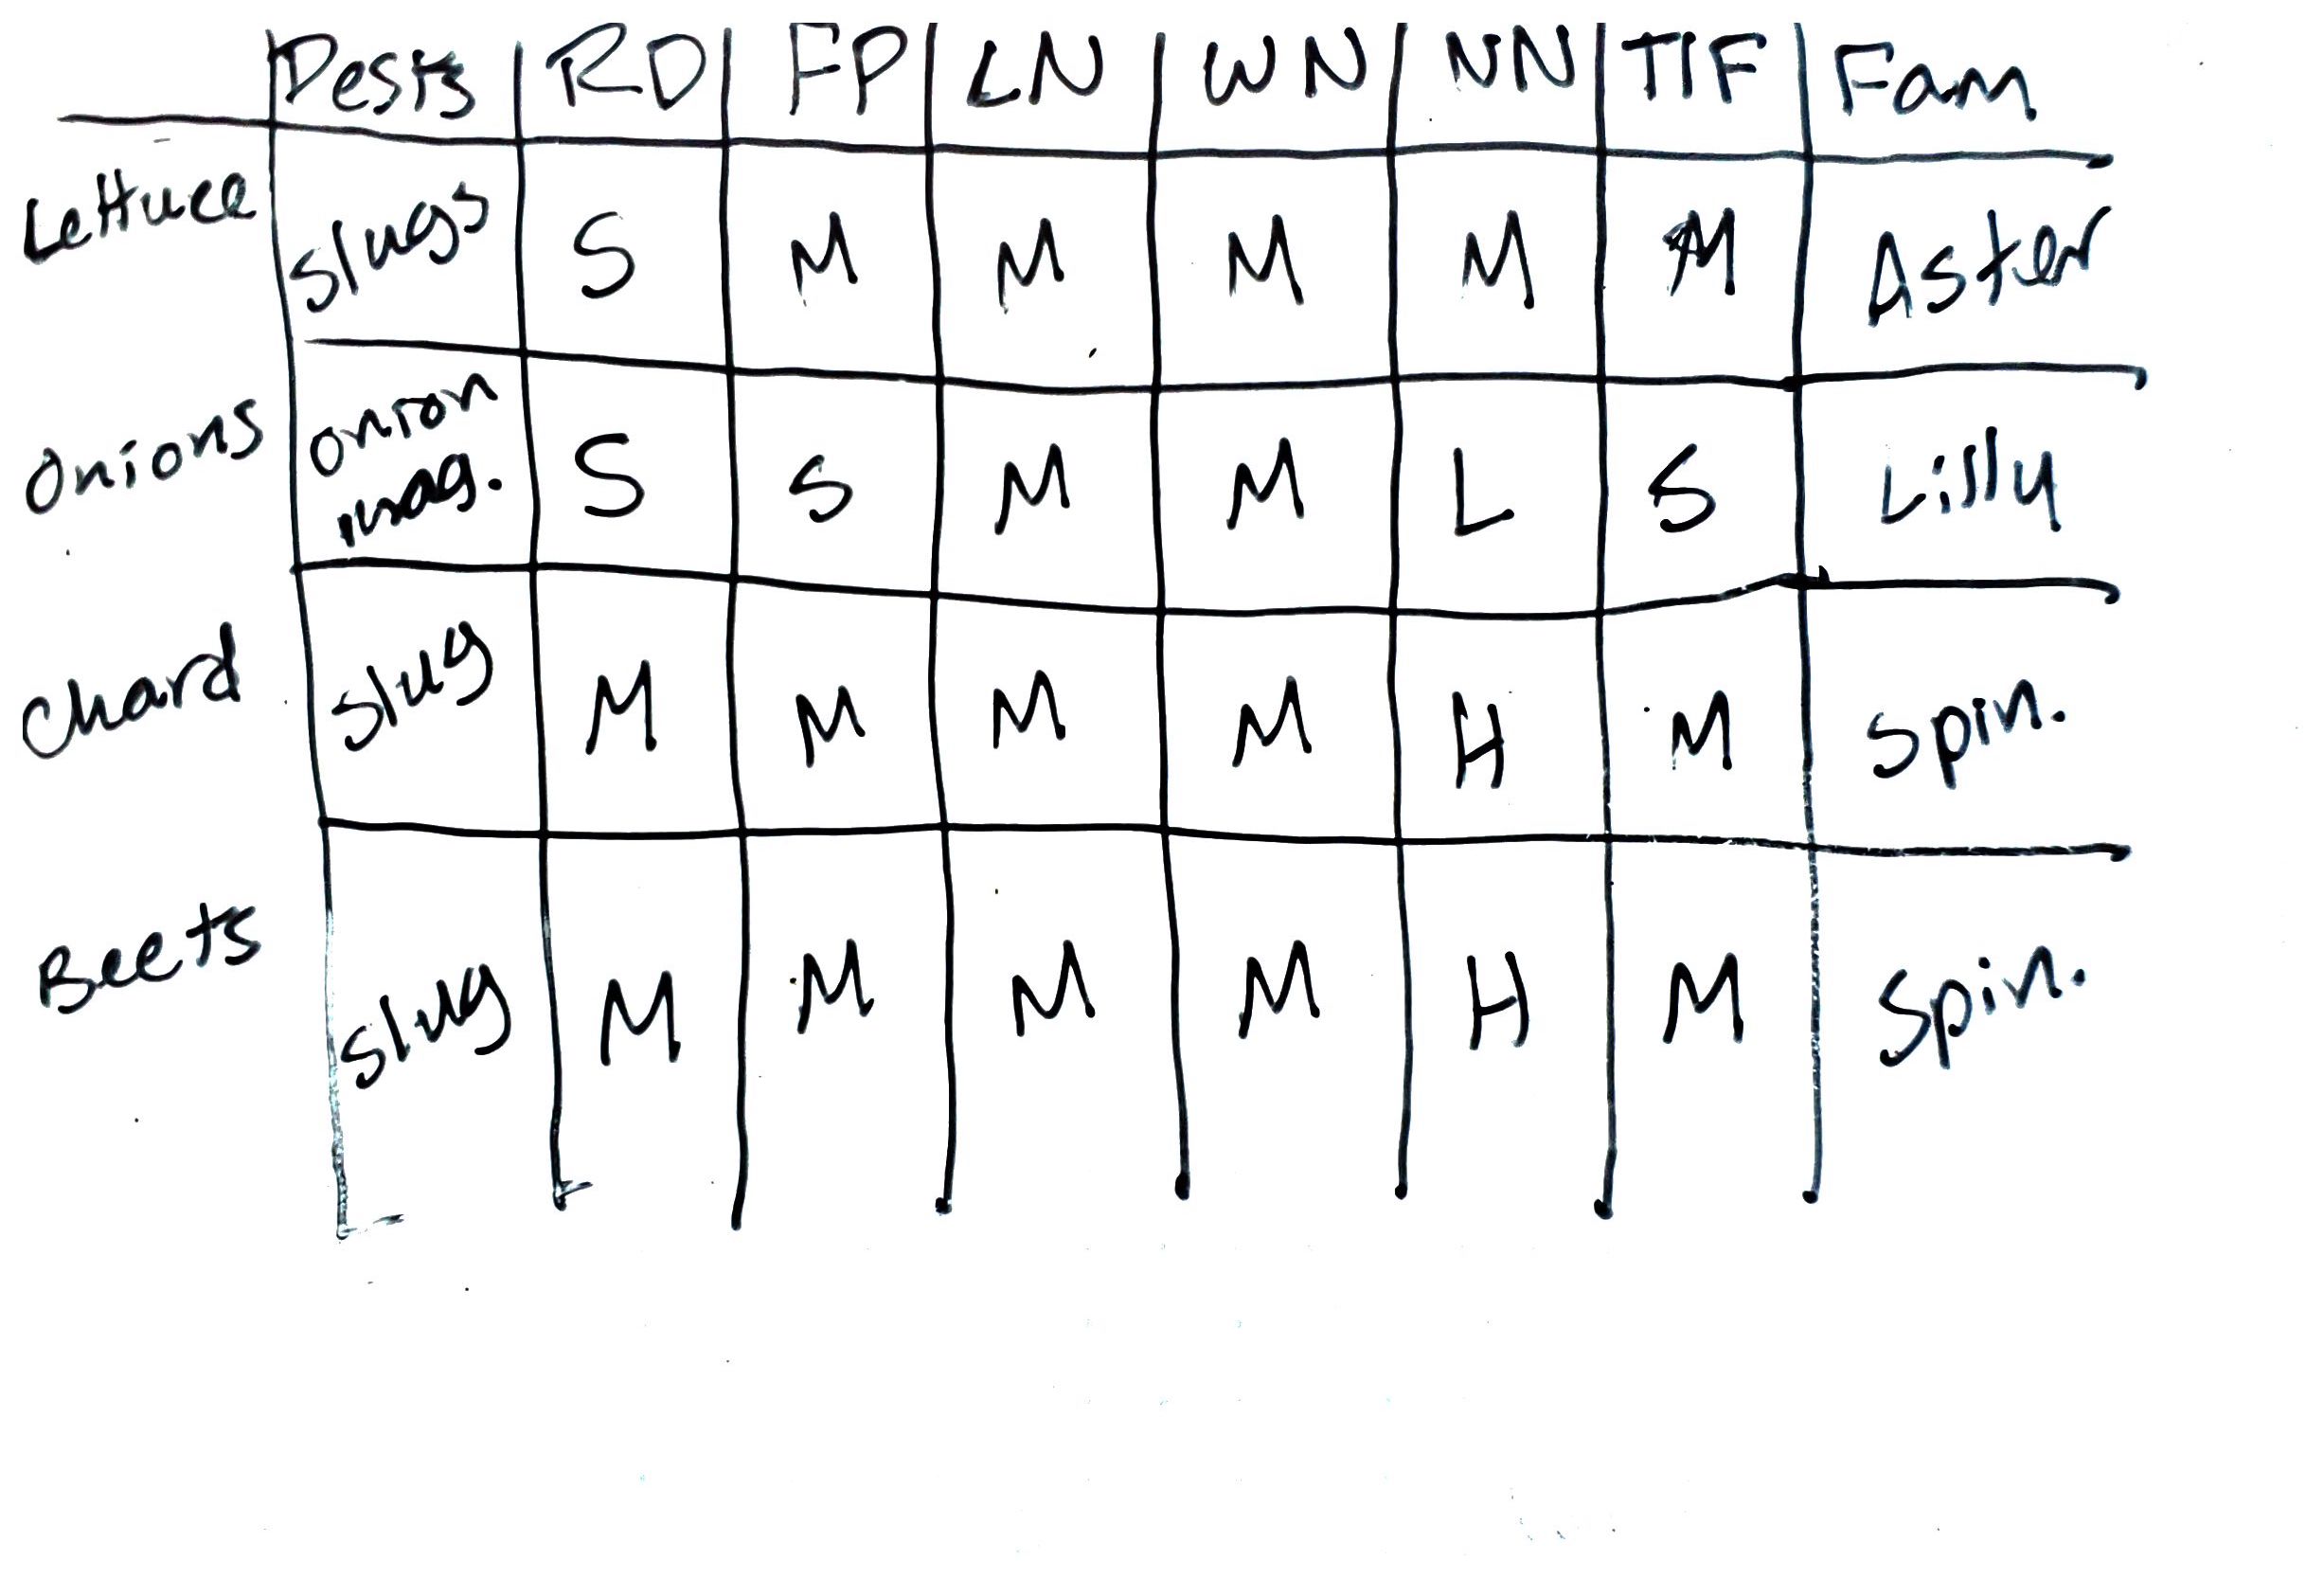 Pests RD FP LN WN NN TIF Fam
Lettuce slugs S M M M M M Aster
Onions onion S S M M L S Lilly
mag.
Chard slug M M M M H M Spin.
Beets slug M M M M H M Spin.